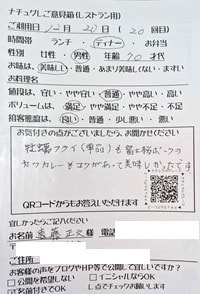 ナチュグレご意見箱(レストラン用)
ご利用日 12月 20日 ( 20回目)
時間帯 ランチ・ディナー・お弁当
性別 女性・男性 年齢 70才代
お味は、美味しい・普通・あまり美味しくない・まずい
お料理名
値段は、安い・やや安い・普通・やや高い・高い
ボリュームは、満足・やや満足・やや不足・不足
接客態度は、良い・普通・少し悪い・悪い
お気付きの点がございましたら、お聞かせください
牡蠣フライ(単品)も
カツカレーもコクがあって美味しかったです
QRコードからもお答えいただけます
宜しかったらご記入ください
お名前 遠藤正文 様 電話
〒
ご住所
お客様の声をブログやHP等で公開して宜しいですか?
□公開を希望しない □イニシャルならOK
□名前付きでOK レ点でチェックお願いします